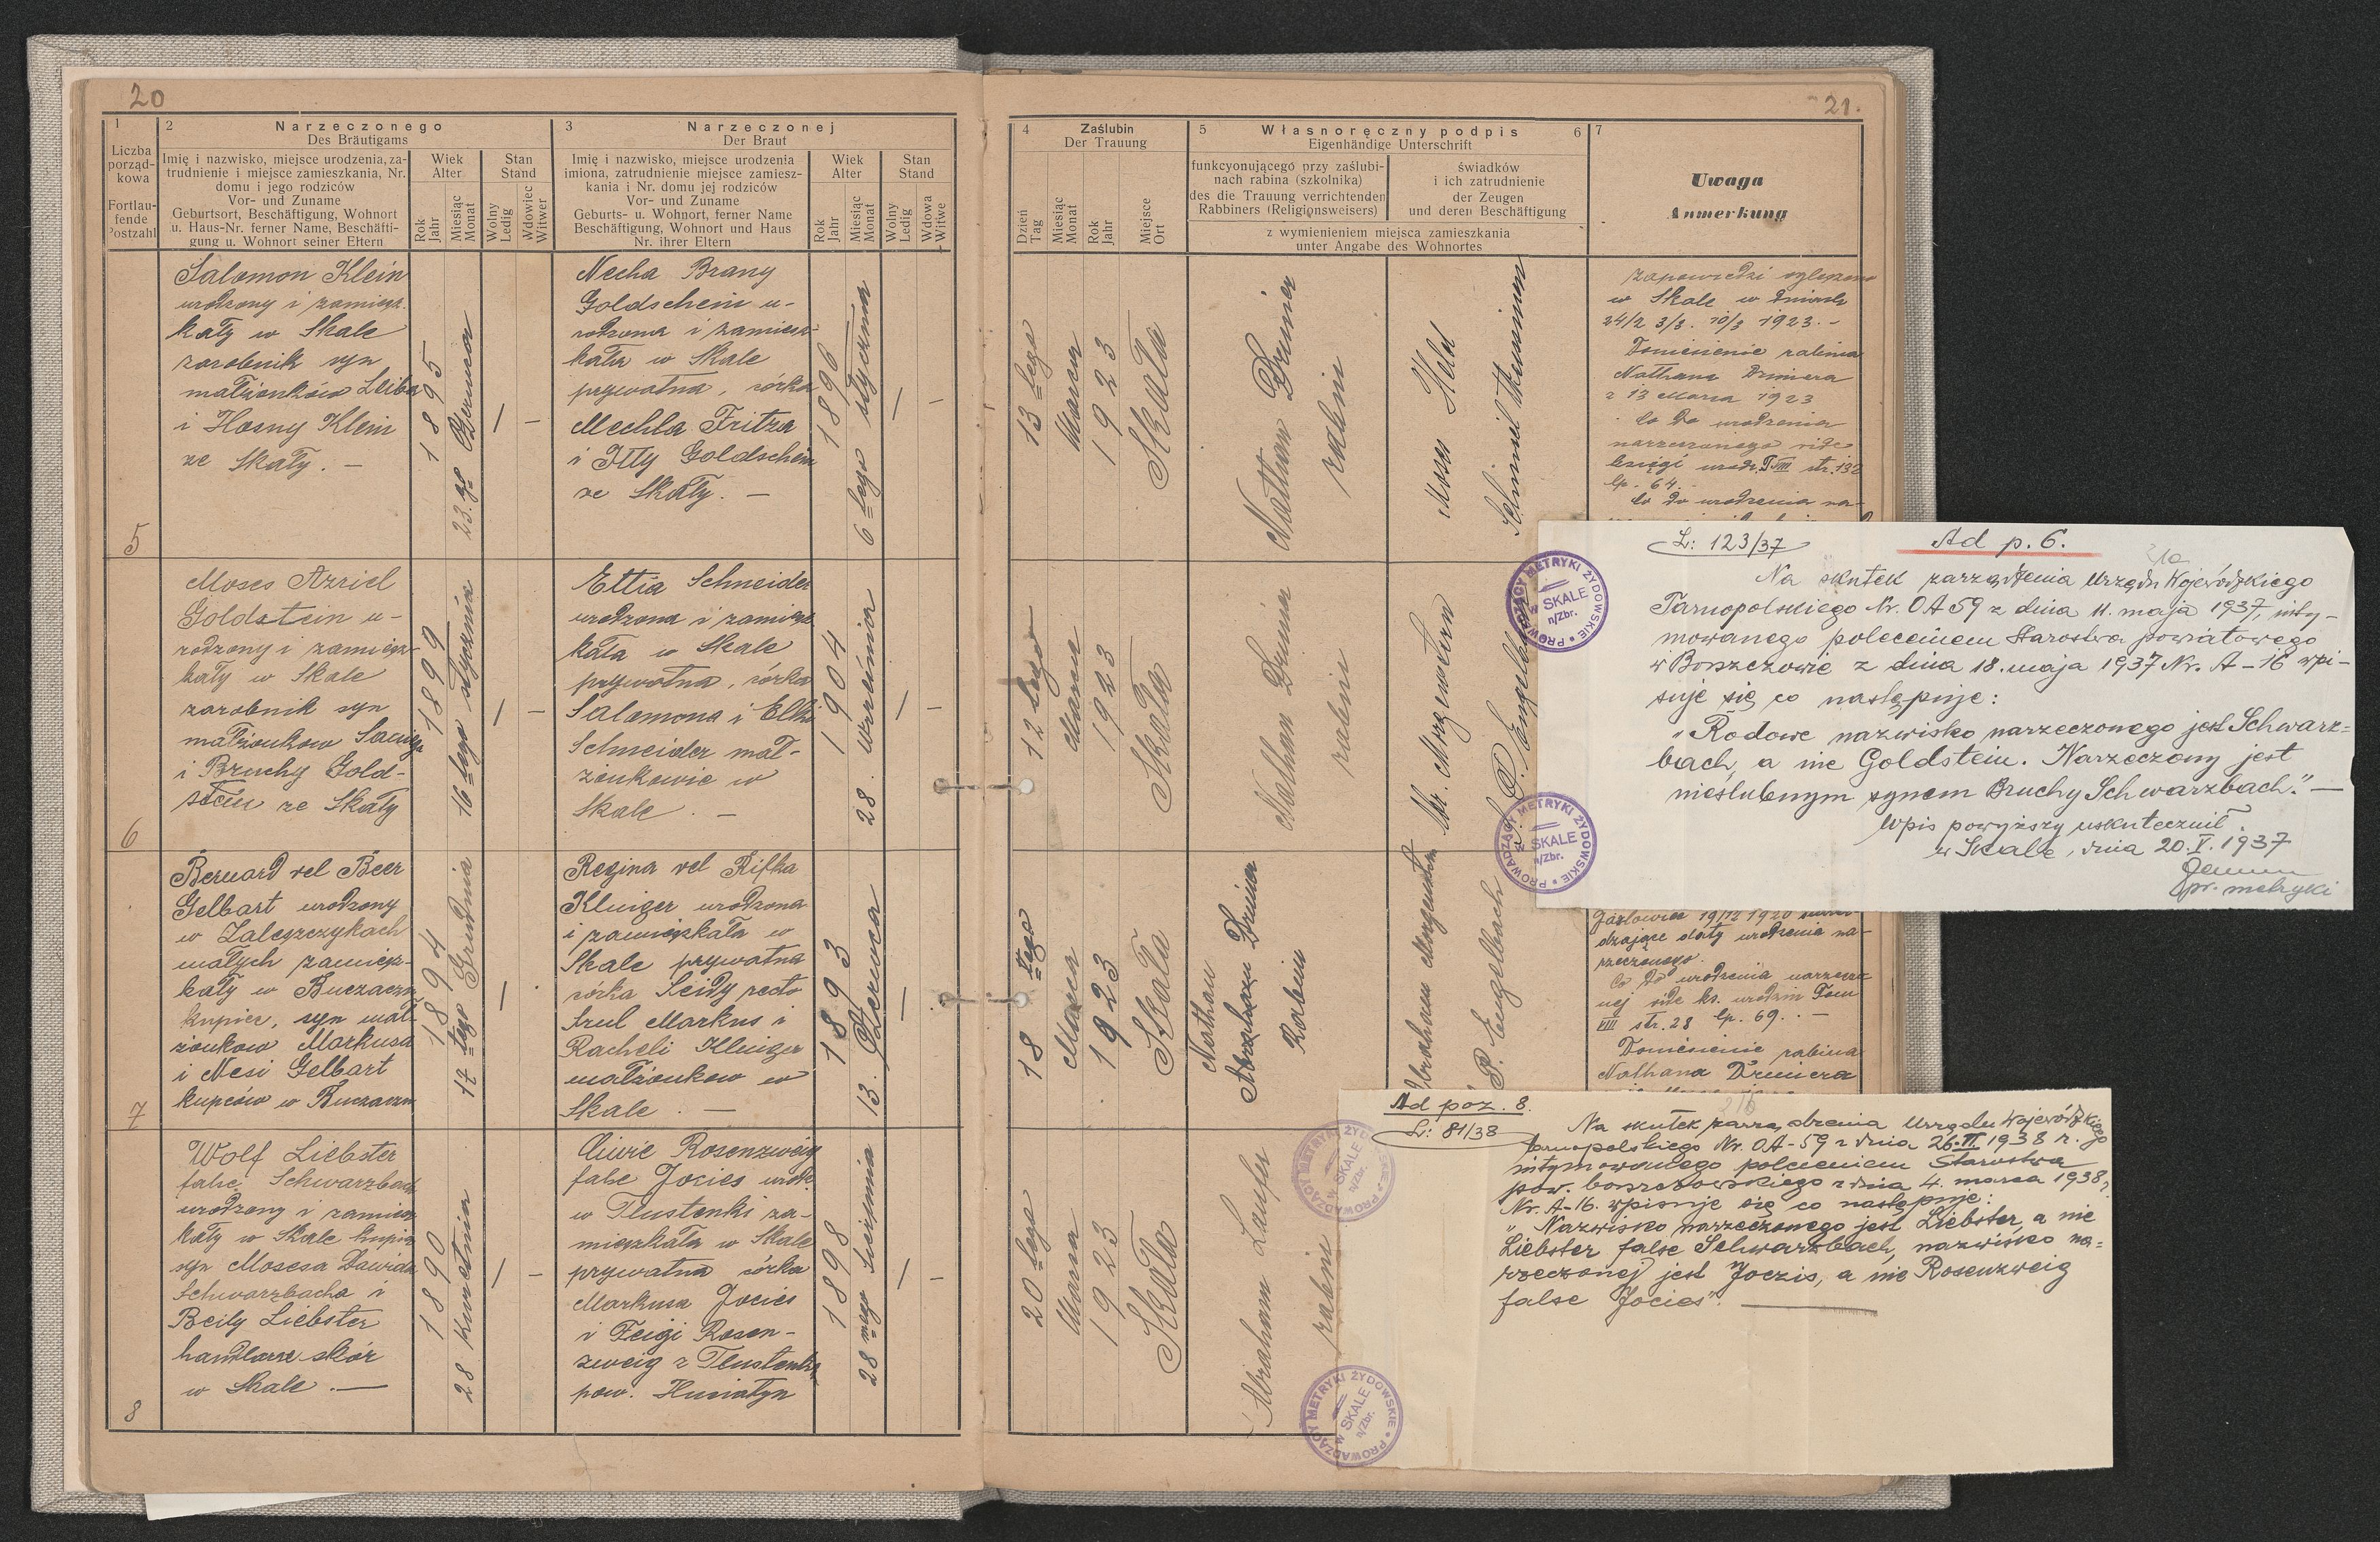 20
1
Liczba
porząd-
kowa
Fortlau-
fende
Postzahl
2 Narzeczonego
Des Bräutigams
Imię i nazwisko, miejsce urodzenia, za-
trudnienie i miejsce zamieszkania, Nr.
domu i jego rodziców
Vor- und Zuname
Geburtsort, Beschäftigung, Wohnort
u. Haus-Nr. ferner Name, Beschäfti-
gung u. Wohnort seiner Eltern
Wiek
Alter
Rok
Jahr
Miesiąc
Monat
Stan
Stand
Wolny
Ledig
Wdowiec
Witwer
3 Narzeczonej
Der Braut
Imię i nazwisko, miejsce urodzenia
imiona, zatrudnienie miejsce zamiesz-
kania i Nr. domu jej rodziców
Vor- und Zuname
Geburts- u. Wohnort, ferner Name
Beschäftigung, Wohnort und Haus
Nr. ihrer Eltern
Wiek
Alter
Rok
Jahr
Miesiąc
Monat
Stan
Stand
Wolny
Ledig
Wdowa
Witwe
5
Salomon Klein
urodzony i zamiesz.
kały w Skale
zarobnik syn
małżonków Leiba
i Hosny Klein
ze Skały. —
1895
23.go Czerwca
Necha Brany
Goldschein u-
rodzona i zamiesz-
kała w Skale
prywatna, córka
Mechla Fritza
i Itty Goldschein
ze Skały. —
1896
6 tego stycznia
6
Moses Azriel
Goldstein u-
rodzony i zamiesz-
kały w Skale
zarobnik syn
małżonkow
i Bruchy Gold-
stein ze Skały
1899
16 tego stycznia
Ettia Schneider
urodzona i zamiesz
kała w Skale
prywatna, córka
Salamona i Elki
Schneider mał-
żonkowie w
Skale. —
1904
28. września
7
Bernard vel Beer
Gelbart urodzony
w Zaleszczykach
małych zamiesz-
kały w Buczaczu
kupiec, syn mał-
żonkow Markusa
i Nesi Gelbart
kupców w Buczaczu
1894
17 tego Grudnia
Regina vel Rifka
Kluiger urodzona
i zamieszkała w
Skale prywatna
córka Leidy recto
Srul Markus i
Racheli Kluiger
małżonkow w
Skale. —
1893
13. Czerwca
8
Wolf Liebster
false Schwarzbach
urodzony i zamiesz
kały w Skale kupiec
syn Mosesa Dawida
Schwarzbacha i
Beily Liebster
handlarze skór
w Skale. —
1890
28 Kwietnia
Rosenzweig
false Jocies urodz.
w Tłustenki za-
mieszkała w Skale
prywatna córka
Markusa Jocies
i Feigi Rosen-
zweig z Tłustenka
pow. Husiatyn
1898
28 mego Sierpnia
21.
4 Zaślubin
Der Trauung
Dzień
Tag
Miesiąc
Monat
Rok
Jahr
Miejsce
Ort
5 Własnoręczny podpis 6
Eigenhändige Unterschrift
funkcyonującego przy zaślubi-
nach rabina (szkolnika)
des die Trauung verrichtenden
Rabbiners (Religionsweisers)
świadków
i ich zatrudnienie
der Zeugen
und deren Beschäftigung
z wymienieniem miejsca zamieszkania
unter Angabe des Wohnortes
7
Uwaga
Anmerkung
13 tego
Marca
1923
Skała
Nathan Drimer
rabin
Moses Held
zapowiedzi ogłoszono
w Skale w dniach
24/2 3/3. 10/3 1923. -
Doniesienie rabina
Nathana Drimera
z 13 Marca 1923
Co do urodzenia
narzeczonego vide
księgi urodz. T VIII str. 132
lp. 64.
Co do urodzenia na-
12 tego
Marca
1923
Skała
Nathan Drimer
rabin
Mr. Morgenstern
P. Engelbach
18 tego
Marca
1923
Skała
Nathan
Abraham Drimer
Rabin
Abraham Morgenstern
P. Engelbach
Jazłowiec 19/12 1920
dzające daty urodzenia na-
rzeczonego.
Co do urodzenia narzecz
nej vide ks. urodzin Tom
VIII str. 28 lp. 69. . —
Doniesienie rabina
Nathana Drimera
20 tego
Marca
1923
Skała
Abraham Laufer
rabin
L: 123/37
Ad p. 6.
21a
Na skutek zarządzenia Urzędu Wojewódzkiego
Tarnopolskiego Nr. OA 59 z dnia 11. maja 1937, inty-
mowanego poleceniem Starostwa powiatowego
w Borszczowie z dnia 18. maja 1937 Nr. A-16 wpi-
suje się co następuje:
„Rodowe nazwisko narzeczonego jest Schwarz=
bach, a nie Goldstein. Narzeczony jest
nieślubnym synem Bruchy Schwarzbach". —
Wpis powyższy uskutecznił.
w Skale, dnia 20.V.1937
pr. metryki
PROWADZĄCY METRYKI ŻYDOWSKIE
w SKALE
n/Zbr.
PROWADZĄCY METRYKI ŻYDOWSKIE
w SKALE
n/Zbr.
Ad poz. 8.
L: 81/38
21b
Na skutek zarządzenia Urzędu Wojewódzkiego
Tarnopolskiego Nr. OA-59 z dnia 26.II 1938 r.
intymowanego poleceniem Starostwa
pow. borszczowskiego z dnia 4. marca 1938 r.
Nr. A-16. wpisuje się co następuje:
„Nazwisko narzeczonego jest Liebster, a nie
Liebster false Schwarzbach, nazwisko na=
rzeczonej jest Joczis, a nie Rosenzweig
false Jocies". —
PROWADZĄCY METRYKI ŻYDOWSKIE
w SKALE
n/Zbr.
PROWADZĄCY METRYKI ŻYDOWSKIE
w SKALE
n/Zbr.